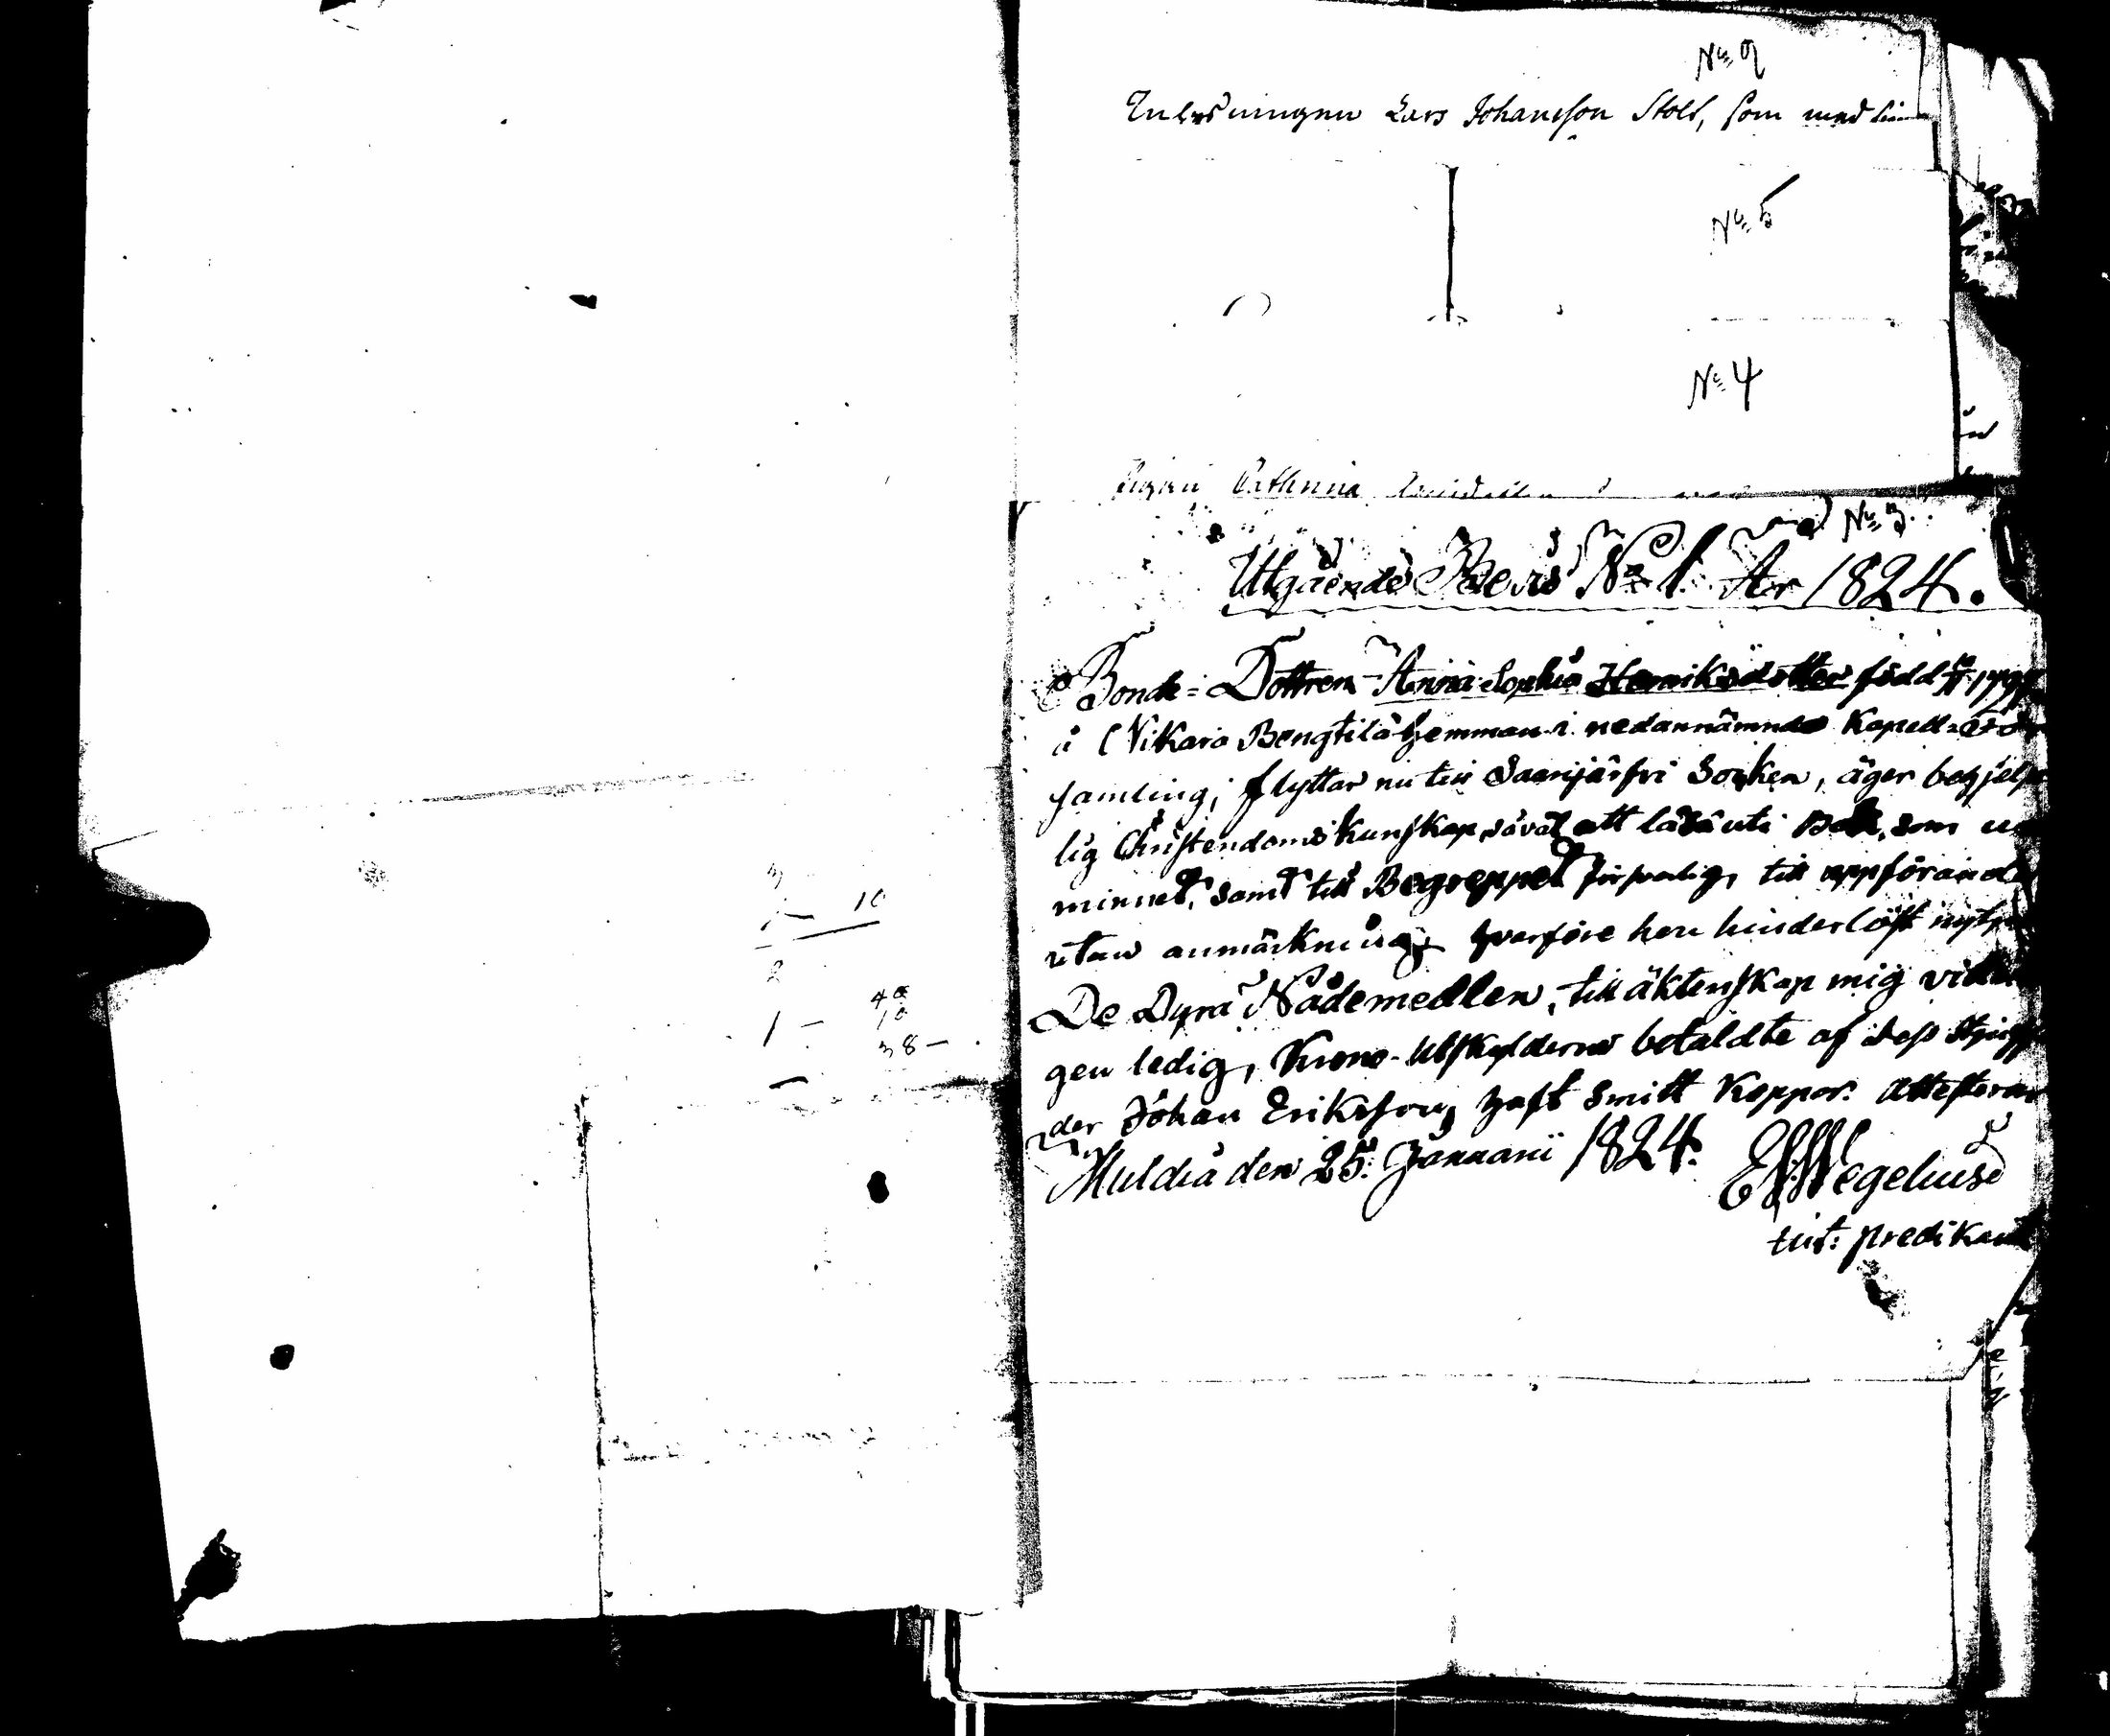 No 9
Lars Johansson Stolt, som med sin
No 5
No 4
Pigan Cathrina
No 3.
Utgående Bevis No 1. År 1824.
Bonde-Dottren Anna Sophia Henriksdotter född
å Vikars Bengtilä hemman i nedannämnde Kapell-För
samling, flyttar nu till Saarijärfvi Socken, äger behjelp
lig Christendoms Kunskap, såväl att läsa uti Bok, som
minnet, samt till Begreppet försvarlig, till uppförandet
utan anmärkning, hvarföre hon hinderlöst
De Dyra Nådemedlen, till äktenskap mig
gen ledig, Krono-Utskylderna betaldte af dess
der Johan Eriksson, haft Smitt Koppor. Attesterar
Muldia den 25. Januarii 1824.
Wegelius
predikant
3
10
2
48
1 - 10
38 -